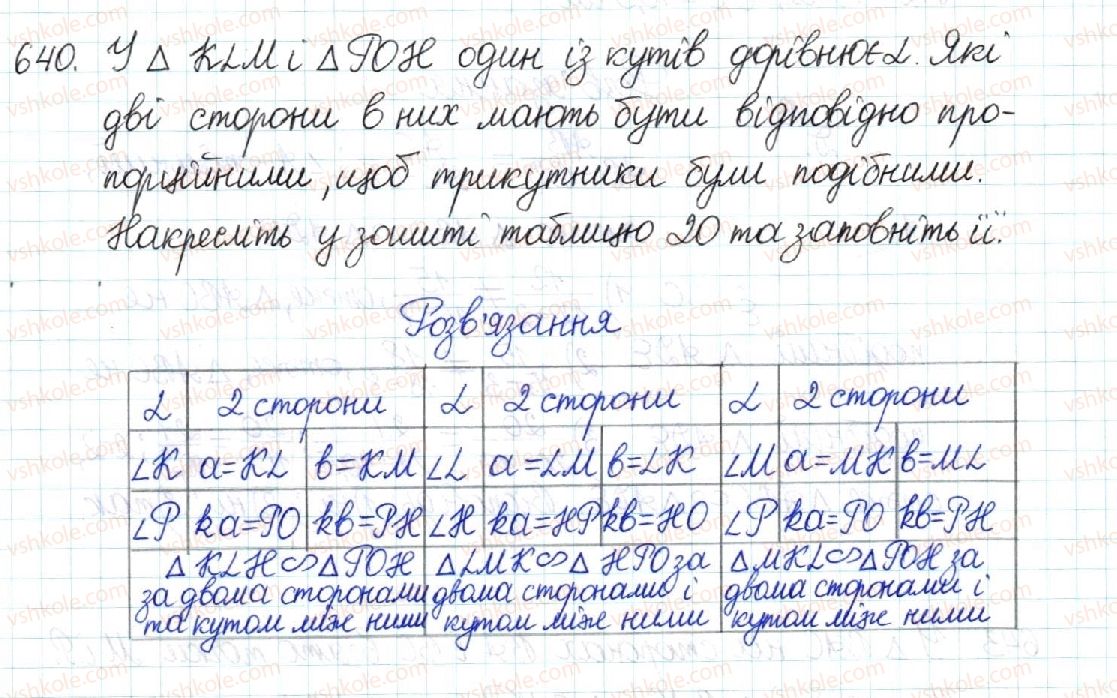 640. У △ KLM і △ РОН один із кутів дорівнює α. Які
дві сторони в них мають бути відповідно про-
порційними, щоб трикутники були подібними.
Накресліть у зошиті таблицю 20 та заповніть її.
Розв'язання
α 2 сторони α 2 сторони α 2 сторони
∠K a=KL b=KM ∠L a=LM b=LK ∠M a=MK b=ML
∠P ka=PO kb=PH ∠H ka=HP kb=HO ∠P ka=PO kb=PH
△ KLH ∽ △ POH △ LMK ∽ △ HPO за △ MKL ∽ △ POH за
за двома сторонами двома сторонами і двома сторонами і
та кутом між ними кутом між ними кутом між ними
vshkole.com